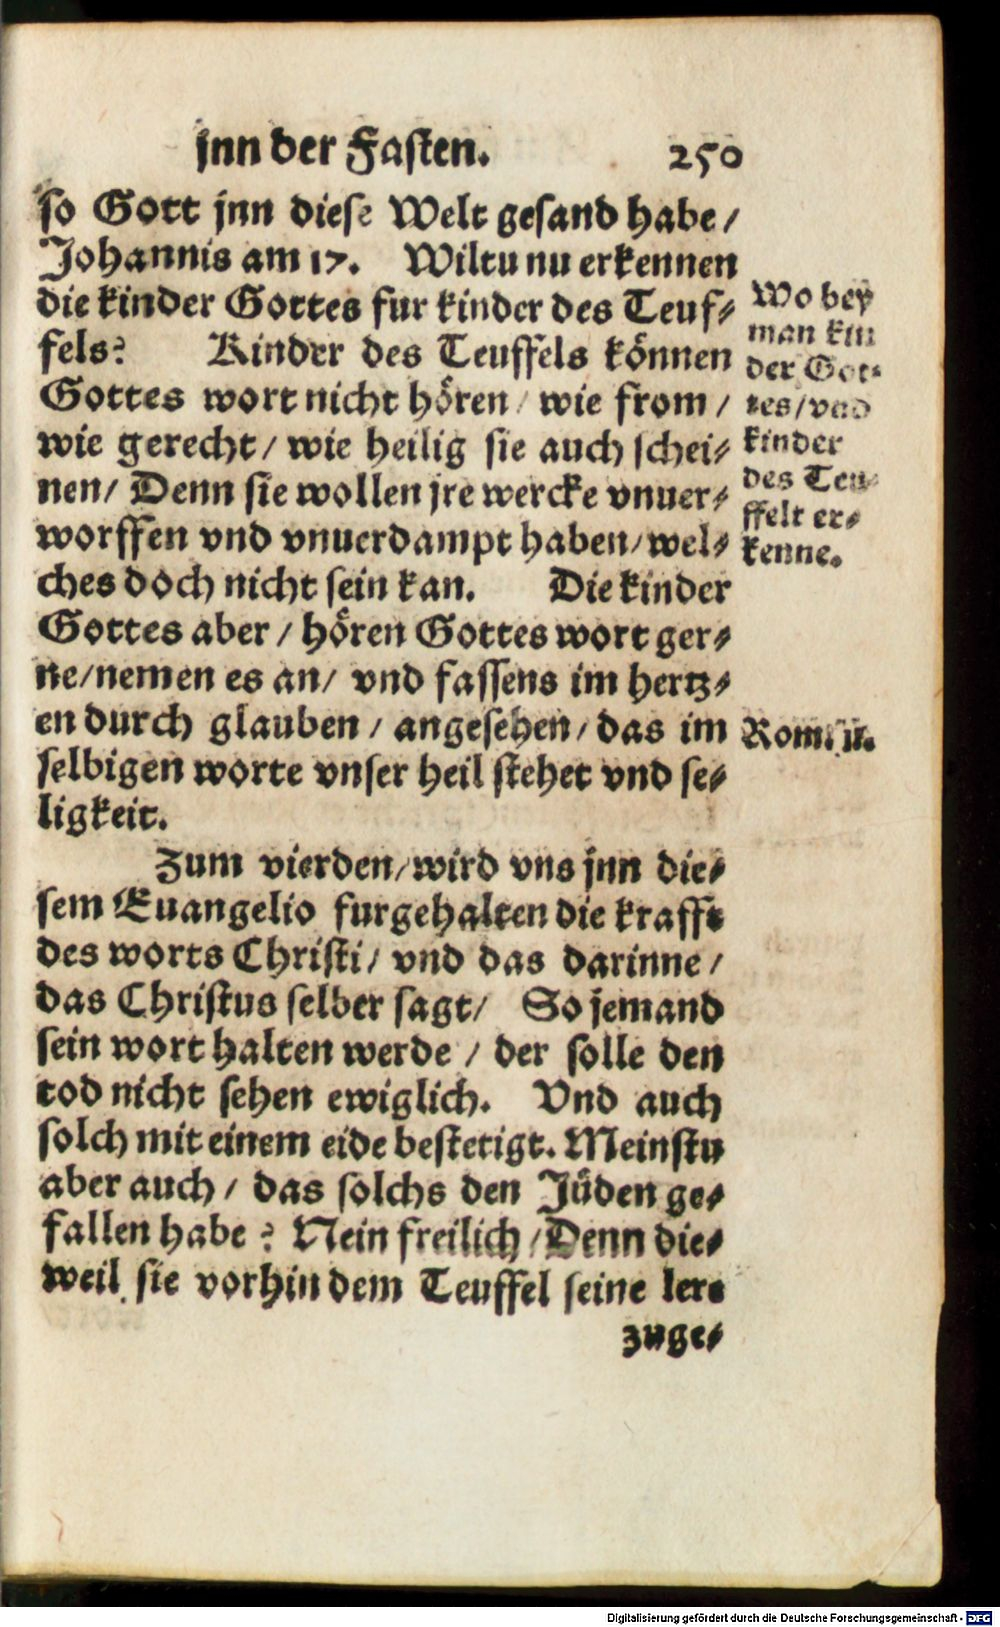 jnn der Fasten. 250
so Gott jnn diese Welt gesand habe /
Johannis am 17. Wiltu nu erkennen
die kinder Gottes fur kinder des Teuf⸗
fels? Kinder des Teuffels können
Gottes wort nicht hören / wie from /
wie gerecht / wie heilig sie auch schei⸗
nen / Denn sie wollen jre wercke vnuer⸗
worffen vnd vnuerdampt haben / wel⸗
ches doch nicht sein kan. Die kinder
Gottes aber / hören Gottes wort ger⸗
ne / nemen es an / vnd fassens im hertz⸗
en durch glauben / angesehen / das im
selbigen worte vnser heil stehet vnd se⸗
ligkeit.
Wo bey
man kin
der Got⸗
tes / vnd
kinder
des Teu⸗
ffelt er⸗
kenne.
Rom. 11.
Zum vierden / wird vns jnn die⸗
sem Euangelio furgehalten die krafft
des worts Christi / vnd das darinne /
das Christus selber sagt / So jemand
sein wort halten werde / der solle den
tod nicht sehen ewiglich. Vnd auch
solch mit einem eide bestetigt. Meinstu
aber auch / das solchs den Jüden ge⸗
fallen habe? Nein freilich / Denn die⸗
weil sie vorhin dem Teuffel seine lere
zuge⸗
Digitalisierung gefördert durch die Deutsche Forschungsgemeinschaft - DFG